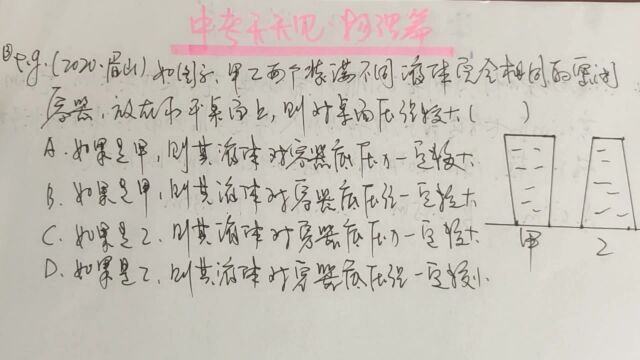 中考天天见·物理篇
③e.g.(2020·眉山)如图示,甲乙两个装满不同液体完全相同的密闭
容器,放在水平桌面上,则对桌面压强较大(  )
A.如果是甲,则其液体对容器底压力一定较大
B.如果是甲,则其液体对容器底压强一定较大
C.如果是乙,则其液体对容器底压力一定较大
D.如果是乙,则其液体对容器底压强一定较小
甲
乙